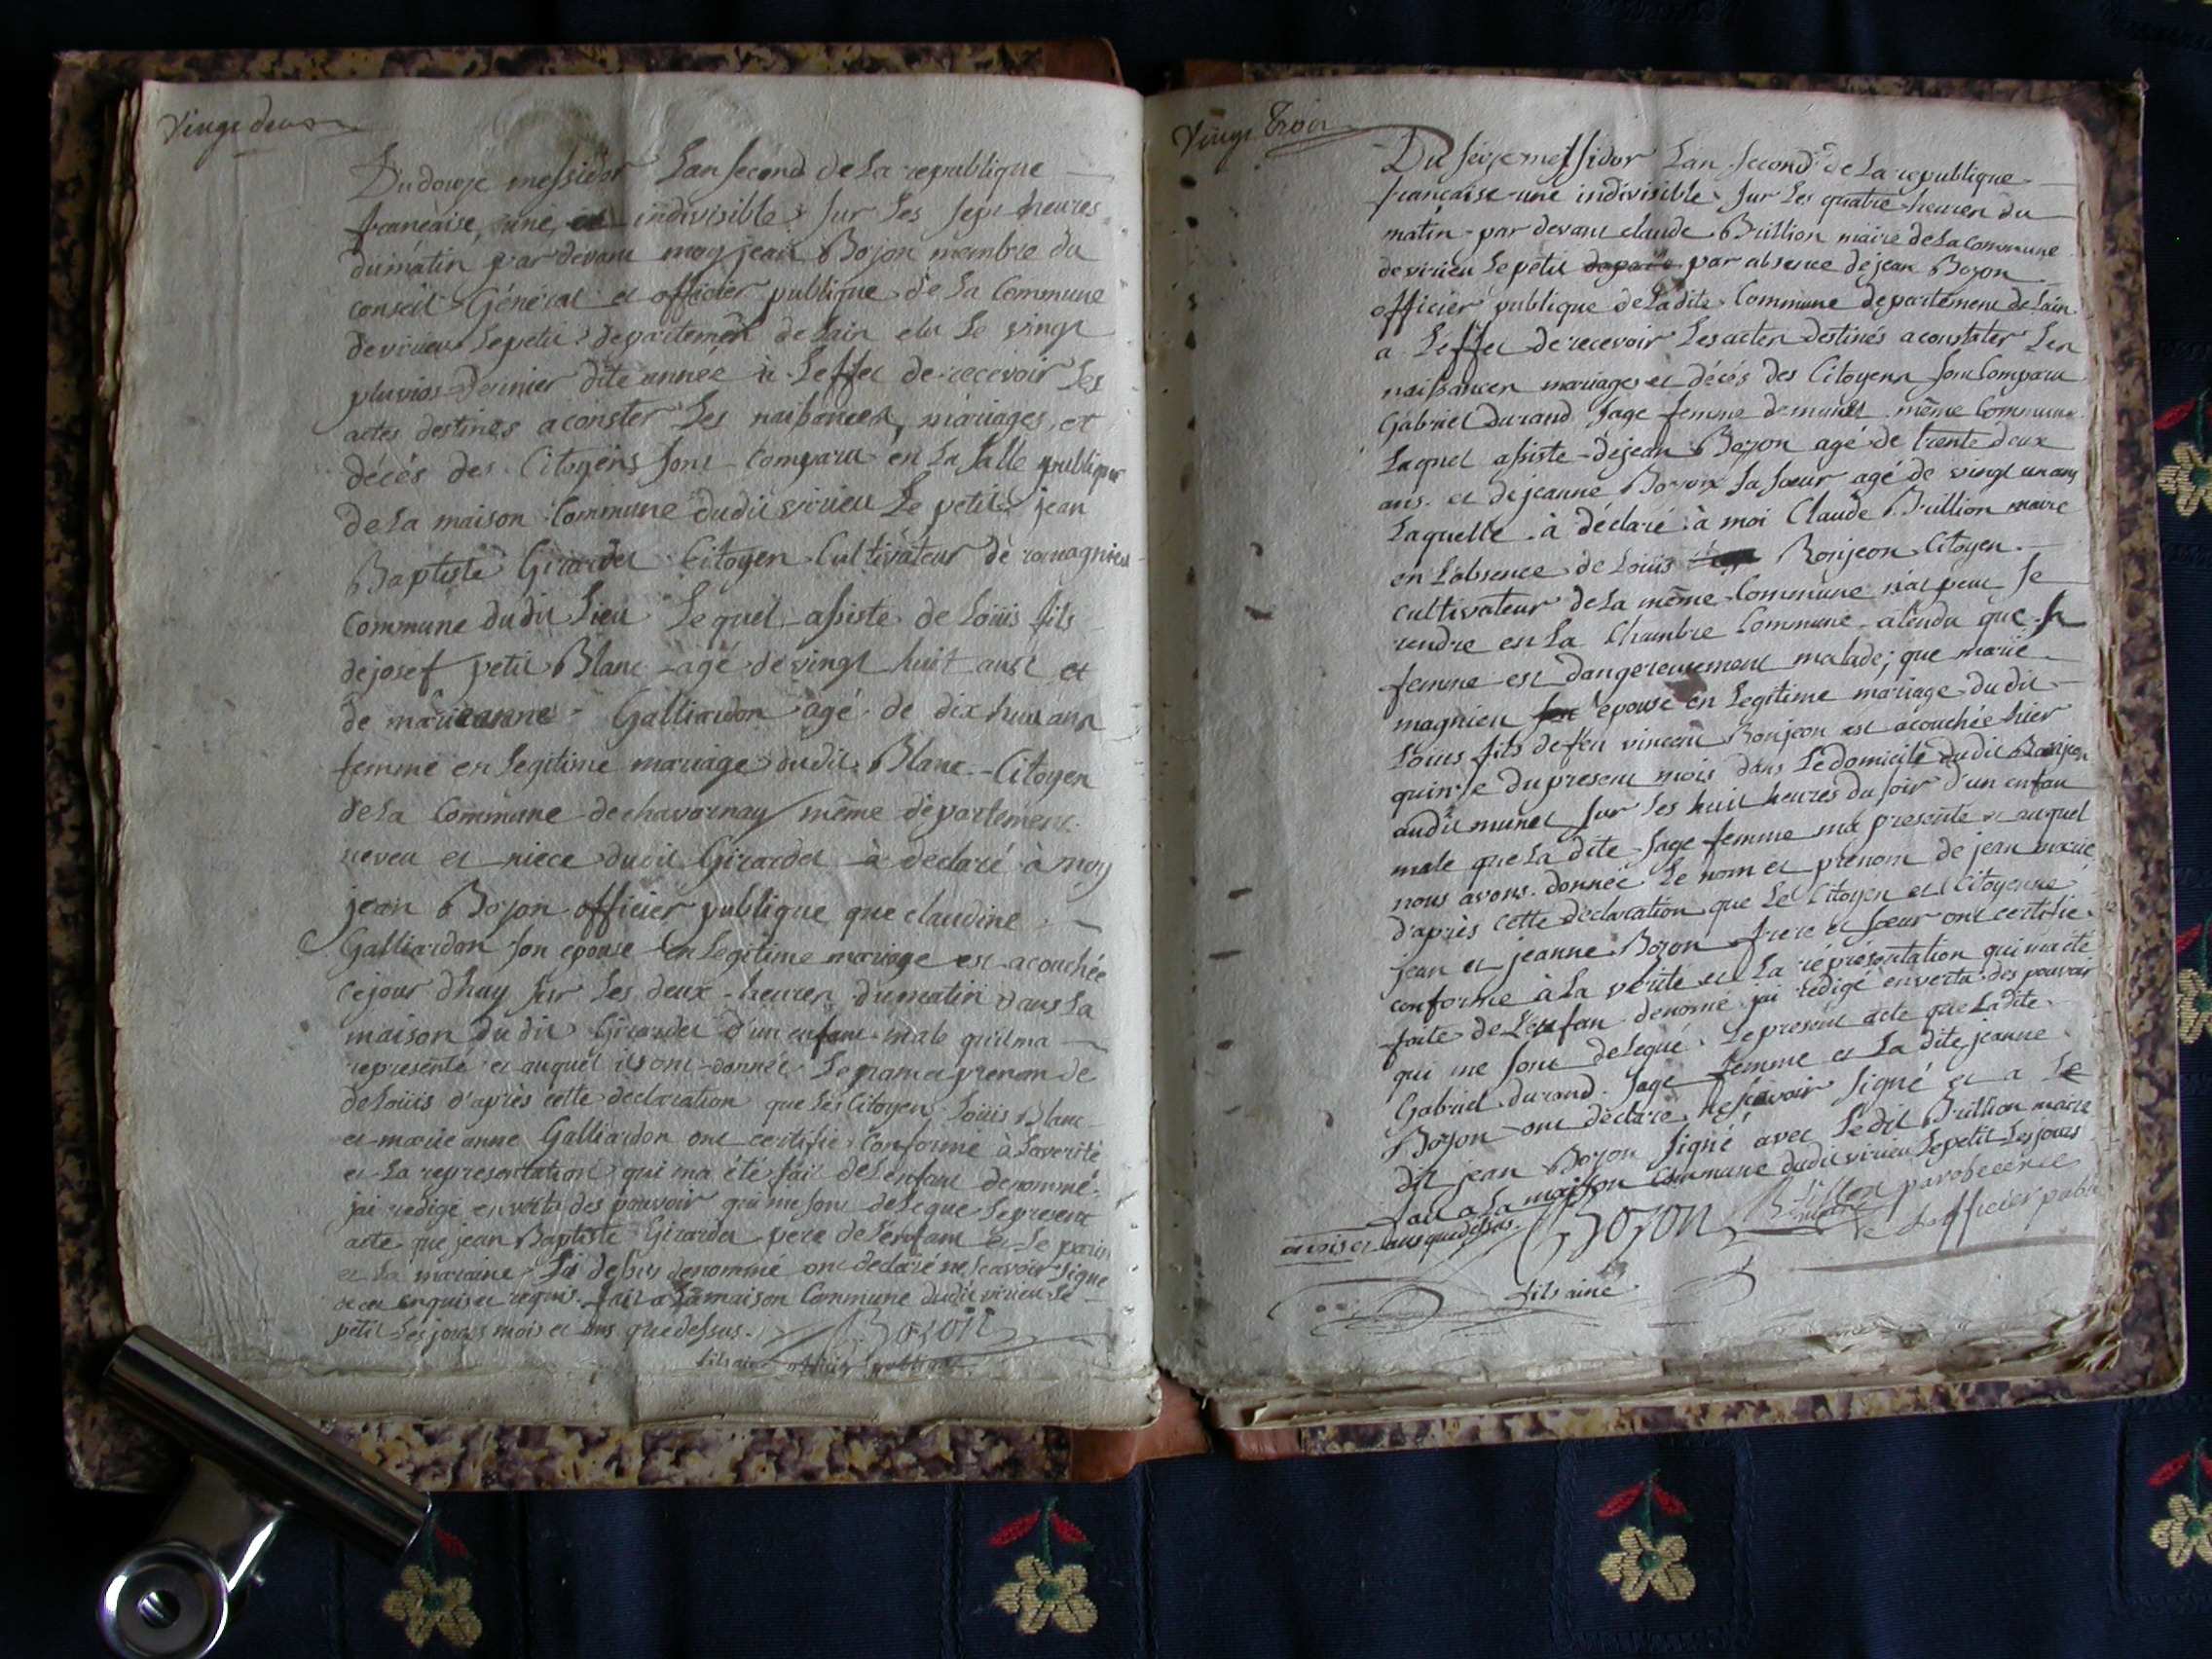 Vingt deux
Du douze messidor Lan second de La republique
francaise, une, et indivisible sur Les sept heures
du matin par devant moy jean Bozon membre du
conseil Général et officier publique de La Commune
de virieu Le petit departement de Lain elu Le vingt
pluvios dernier dite année à Leffet de recevoir Les
actes destines a conster Les naissances, mariages, et
décés des Citoyens sont Comparu en La Salle publique
de La maison Commune dudit virieu Le petit jean
Baptiste Girardet Citoyen Cultivateur de romagnieu
Commune dudit Lieu Le quel assiste de Loüis fils
de josef petit Blanc agé de vingt huit ans et
de marieanne Galliardon agé de dix huit ans
femme en Legitime mariage dudit Blanc Citoyen
de La Commune de chavornay même département
neveu et niece dudit Girardet à declaré à moy
jean Bozon officier publique que claudine
Galliardon son epouse en Legitime mariage est acouchée
ce jour dhuy sur Les deux heures du matin dans La
maison du dit Girardet d'un enfant male quil ma
representé et auquel ils ont donnée Le nom et prenom de
de Loüis d'après cette declaration que Les Citoyens Loüis Blanc
et marie anne Galliardon ont certifié Conforme à La verité
et La representation qui ma été fait de Lenfant denommé
jai redigé en vertu des pouvoir qui me sont delegue Le present
acte que jean Baptiste Girardet pere de Lenfant et Le parin
et La maraine Si dessus denommé ont declaré ne scavoir signe
de ce enquis et requis. fait a La maison Commune dudit virieu Le
petit Les jours mois et ans que dessus. Bozon
fils ainé officier publique
Vingt Trois
Du seize messidor Lan second de La republique
francaise une indivisible sur Les quatre heures du
matin par devant claude Brillion maire de La commune
de virieu Le petit par absence de jean Bozon
officier publique de La dite Commune departement de Lain
a Leffet de recevoir Les actes destinés a constater Les
naissances mariages et décés des Citoyens sont Comparu
Gabriel Durand sage femme de munet même Commune
Laquel assiste de jean Bozon agé de trente deux
ans et de jeanne Bozon sa sœur agé de vingt un ans
Laquelle à déclaré à moi Claude Brillion maire
en L'absence de Loüis Bonjeon Citoyen
cultivateur de La même Commune n'at peut se
rendre en La Chambre Commune atendu que sa
femme est dangereusement malade; que marie
magnieu épouse en Legitime mariage du dit
Loüis fils de feu vincent Bonjeon est acouchée hier
quinze du present mois dans Le domicile du dit Bonjeon
au dit munet sur Les huit heures du soir d'un enfan
male que La dite sage femme ma presenté et auquel
nous avons donnée Le nom et prenom de jean marie
d'après cette déclaration que Le Citoyen et Citoyenne
jean et jeanne Bozon frere et sœur ont certifie
conforme à La verité et La représentation qui ma été
faite de L'enfan denomé jai rédigé en vertu des pouvoir
qui me sont delegué Le present acte que La dite
Gabriel durand sage femme et La dite jeanne
Bozon ont déclaré ne scavoir signé et a Le
dit jean Bozon signé avec Le dit Brillion maire
fait a La maison Commune dudit virieu Le petit Les jours
mois et ans que dessus. Bozon Brillion maire par absence
de Lofficier public
fils ainé